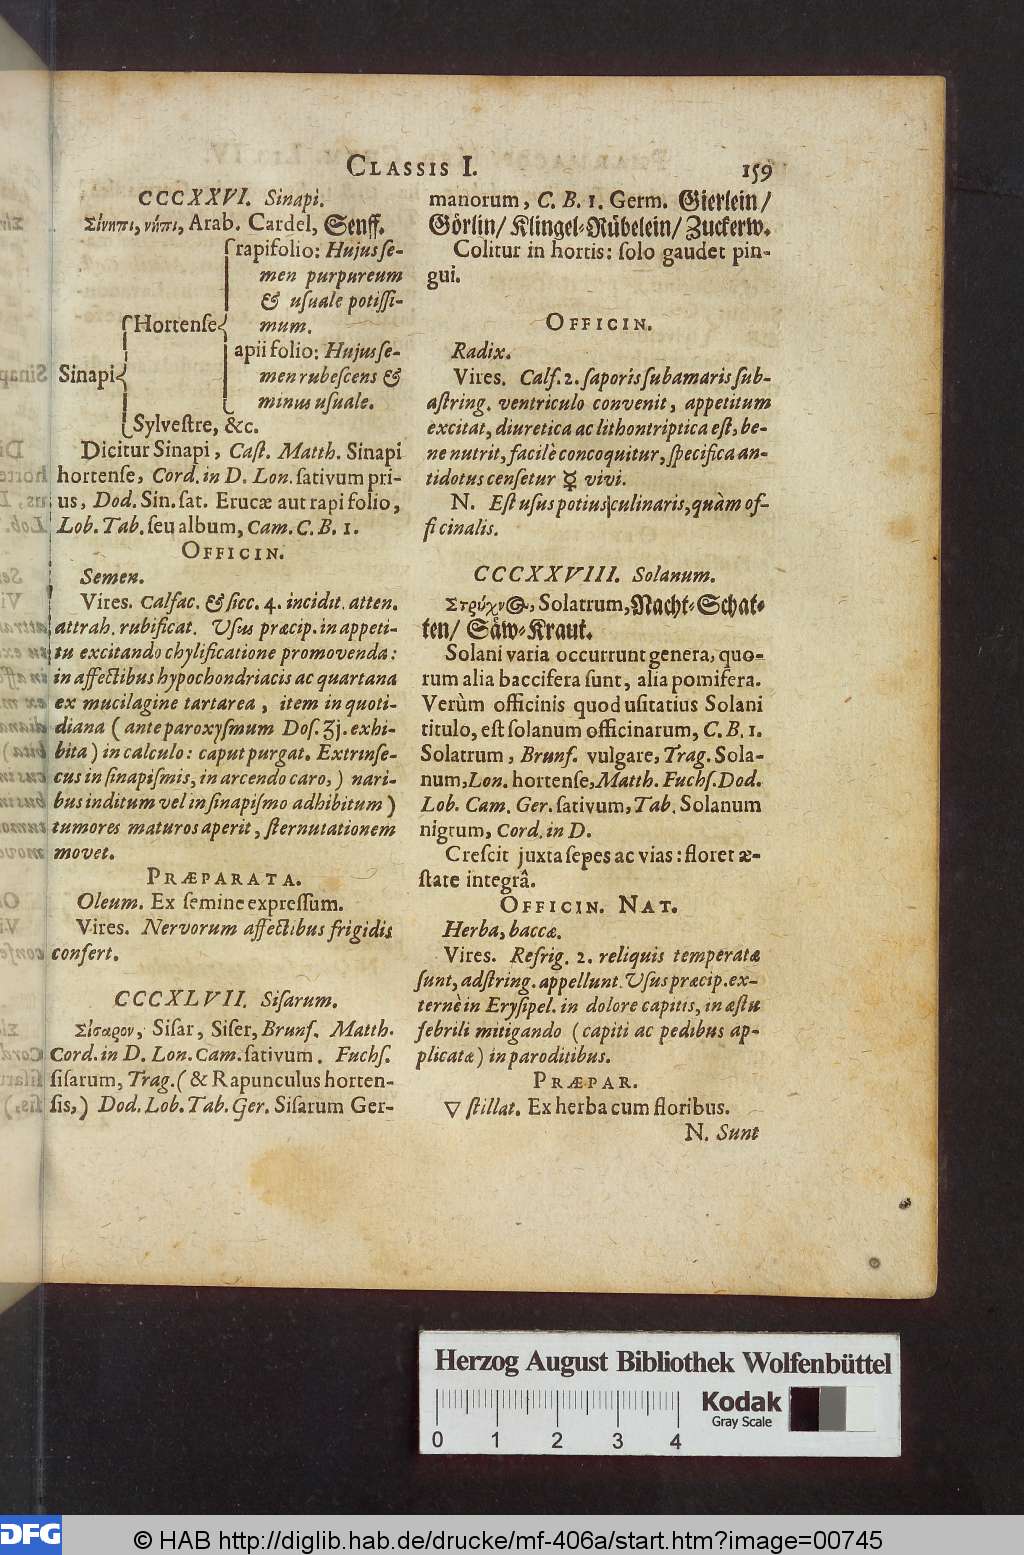 CLASSIS I.
159
CCCXXVI. Sinapi.
Σίνηπι, νήπι, Arab. Cardel, Senff.
rapifolio: Hujus ſe-
men purpureum
& uſuale potiſſi-
Hortenſe mum.
apii folio: Hujus ſe-
Sinapi men rubeſcens &
minus uſuale.
Sylveſtre, &c.
Dicitur Sinapi, Caſt. Matth. Sinapi
hortenſe, Cord. in D. Lon. ſativum pri-
us, Dod. Sin. ſat. Erucæ aut rapi folio,
Lob. Tab. ſeu album, Cam. C. B. 1.
OFFICIN.
Semen.
Vires. Calfac. & ſicc. 4. incidit. atten.
attrah. rubificat. Uſus præcip. in appeti-
tu excitando chylificatione promovenda:
in affectibus hypochondriacis ac quartana
ex mucilagine tartarea, item in quoti-
diana ( ante paroxyſmum Doſ. ʒj. exhi-
bita ) in calculo: caput purgat. Extrinſe-
cus in ſinapiſmis, in arcendo caro, ) nari-
bus inditum vel in ſinapiſmo adhibitum )
tumores maturos aperit, ſternutationem
movet.
PRÆPARATA.
Oleum. Ex ſemine expreſſum.
Vires. Nervorum affectibus frigidis
confert.
CCCXLVII. Siſarum.
Σίσαρον, Siſar, Siſer, Brunf. Matth.
Cord. in D. Lon. Cam. ſativum. Fuchſ.
ſiſarum, Trag. ( & Rapunculus horten-
ſis,) Dod. Lob. Tab. Ger. Siſarum Ger-
manorum, C. B. 1. Germ. Gierlein/
Görlin/ Klingel-Rübelein/ Zuckerw.
Colitur in hortis: ſolo gaudet pin-
gui.
OFFICIN.
Radix.
Vires. Calf. 2. ſaporis ſubamaris ſub-
aſtring. ventriculo convenit, appetitum
excitat, diuretica ac lithontriptica eſt, be-
ne nutrit, facilè concoquitur, ſpecifica an-
tidotus cenſetur ☿ vivi.
N. Eſt uſus potius culinaris, quàm of-
ficinalis.
CCCXXVIII. Solanum.
Στρύχνος, Solatrum, Nacht-Schat-
ten/ Säw-Kraut.
Solani varia occurrunt genera, quo-
rum alia baccifera ſunt, alia pomifera.
Verùm officinis quod uſitatius Solani
titulo, eſt ſolanum officinarum, C. B. 1.
Solatrum, Brunf. vulgare, Trag. Sola-
num, Lon. hortenſe, Matth. Fuchſ. Dod.
Lob. Cam. Ger. ſativum, Tab. Solanum
nigrum, Cord. in D.
Creſcit juxta ſepes ac vias: floret æ-
ſtate integrâ.
OFFICIN. NAT.
Herba, baccæ.
Vires. Refrig. 2. reliquis temperatæ
ſunt, adſtring. appellunt. Uſus præcip. ex-
ternè in Eryſipel. in dolore capitis, in æſtu
febrili mitigando ( capiti ac pedibus ap-
plicatæ ) in paroditibus.
PRÆPAR.
▽ ſtillat. Ex herba cum floribus.
N. Sunt
Herzog August Bibliothek Wolfenbüttel
Kodak
Gray Scale
0 1 2 3 4
DFG
© HAB http://diglib.hab.de/drucke/mf-406a/start.htm?image=00745